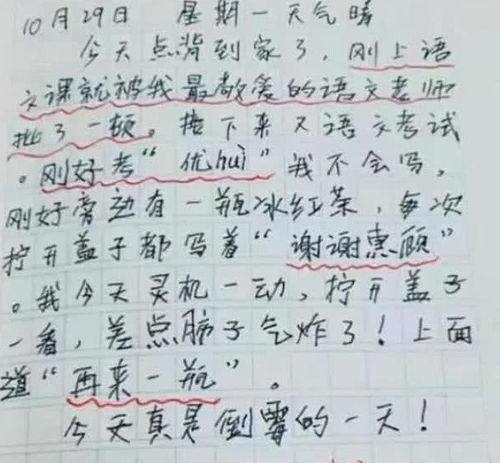 10月29日 星期一天气晴
今天点背到家了，刚上语
文课就被我最敬爱的语文老师
批了一顿。接下来又语文考试
。刚好考“优huì”我不会写，
刚好旁边有一瓶冰红茶，每次
拧开盖子都写着“谢谢惠顾”
。我今天灵机一动，拧开盖子
一看，差点肺子气炸了！上面
道“再来一瓶”。
今天真是倒霉的一天！